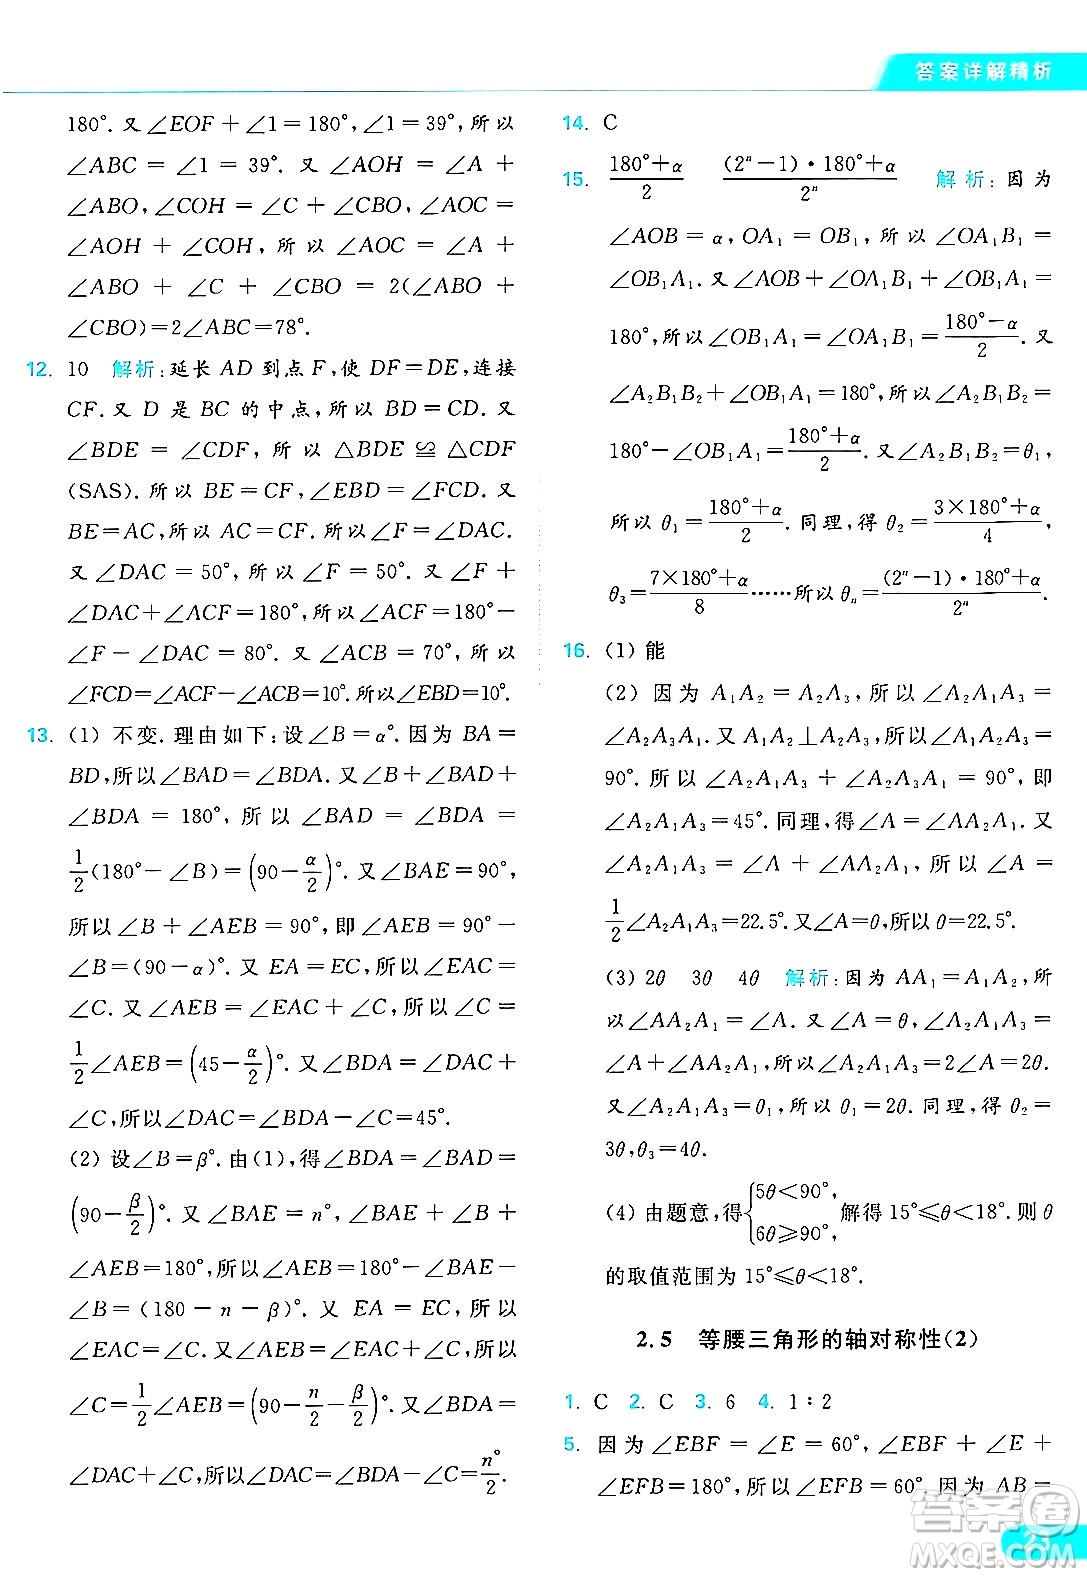 答案详解精析
180°. 又∠EOF+∠1=180°,∠1=39°,所以
∠ABC=∠1=39°. 又∠AOH=∠A+
∠ABO,∠COH=∠C+∠CBO,∠AOC=
∠AOH+∠COH,所以∠AOC=∠A+
∠ABO+∠C+∠CBO=2(∠ABO+
∠CBO)=2∠ABC=78°.
12. 10 解析:延长AD到点F,使DF=DE,连接
CF. 又D是BC的中点,所以BD=CD. 又
∠BDE=∠CDF,所以△BDE≌△CDF
(SAS). 所以BE=CF,∠EBD=∠FCD. 又
BE=AC,所以AC=CF. 所以∠F=∠DAC.
又∠DAC=50°,所以∠F=50°. 又∠F+
∠DAC+∠ACF=180°,所以∠ACF=180°-
∠F-∠DAC=80°. 又∠ACB=70°,所以
∠FCD=∠ACF-∠ACB=10°. 所以∠EBD=10°.
13. (1) 不变. 理由如下:设∠B=α°. 因为BA=
BD,所以∠BAD=∠BDA. 又∠B+∠BAD+
∠BDA=180°,所以∠BAD=∠BDA=
1/2(180°-∠B)=(90-α/2)°. 又∠BAE=90°,
所以∠B+∠AEB=90°,即∠AEB=90°-
∠B=(90-α)°. 又EA=EC,所以∠EAC=
∠C. 又∠AEB=∠EAC+∠C,所以∠C=
1/2∠AEB=(45-α/2)°. 又∠BDA=∠DAC+
∠C,所以∠DAC=∠BDA-∠C=45°.
(2) 设∠B=β°. 由(1),得∠BDA=∠BAD=
(90-β/2)°. 又∠BAE=n°,∠BAE+∠B+
∠AEB=180°,所以∠AEB=180°-∠BAE-
∠B=(180-n-β)°. 又EA=EC,所以
∠EAC=∠C. 又∠AEB=∠EAC+∠C,所以
∠C=1/2∠AEB=(90-n/2-β/2)°. 又∠BDA=
∠DAC+∠C,所以∠DAC=∠BDA-∠C=n°/2.
14. C
15. (180°+α)/2 ((2ⁿ-1)·180°+α)/2ⁿ 解析:因为
∠AOB=α,OA₁=OB₁,所以∠OA₁B₁=
∠OB₁A₁. 又∠AOB+∠OA₁B₁+∠OB₁A₁=
180°,所以∠OB₁A₁=∠OA₁B₁=(180°-α)/2. 又
∠A₂B₁B₂+∠OB₁A₁=180°,所以∠A₂B₁B₂=
180°-∠OB₁A₁=(180°+α)/2. 又∠A₂B₁B₂=θ₁,
所以θ₁=(180°+α)/2. 同理,得θ₂=(3×180°+α)/4,
θ₃=(7×180°+α)/8……所以θₙ=((2ⁿ-1)·180°+α)/2ⁿ.
16. (1) 能
(2) 因为A₁A₂=A₂A₃,所以∠A₂A₁A₃=
∠A₂A₃A₁. 又A₁A₂⊥A₂A₃,所以∠A₁A₂A₃=
90°. 所以∠A₂A₁A₃+∠A₂A₃A₁=90°,即
∠A₂A₁A₃=45°. 同理,得∠A=∠AA₂A₁. 又
∠A₂A₁A₃=∠A+∠AA₂A₁,所以∠A=
1/2∠A₂A₁A₃=22.5°. 又∠A=θ,所以θ=22.5°.
(3) 2θ 3θ 4θ 解析:因为AA₁=A₁A₂,所
以∠AA₂A₁=∠A. 又∠A=θ,∠A₂A₁A₃=
∠A+∠AA₂A₁,所以∠A₂A₁A₃=2∠A=2θ.
又∠A₂A₁A₃=θ₁,所以θ₁=2θ. 同理,得θ₂=
3θ,θ₃=4θ.
(4) 由题意,得{5θ<90°, 6θ≥90°, 解得15°≤θ<18°. 则θ
的取值范围为15°≤θ<18°.
2.5 等腰三角形的轴对称性(2)
1. C 2. C 3. 6 4. 1∶2
5. 因为∠EBF=∠E=60°,∠EBF+∠E+
∠EFB=180°,所以∠EFB=60°. 因为AB=
答案圈
MXQE.COM
23